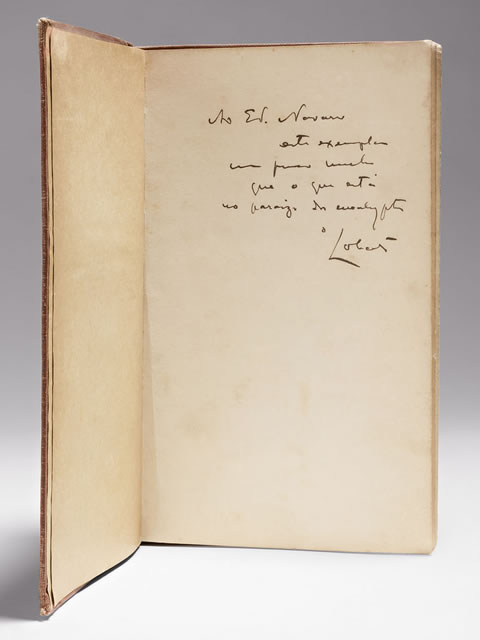 Ao Ed. Navarro
este exemplar
um pouco melhor
que o que está
no paraizo dos eucalyptos
o
Lobato